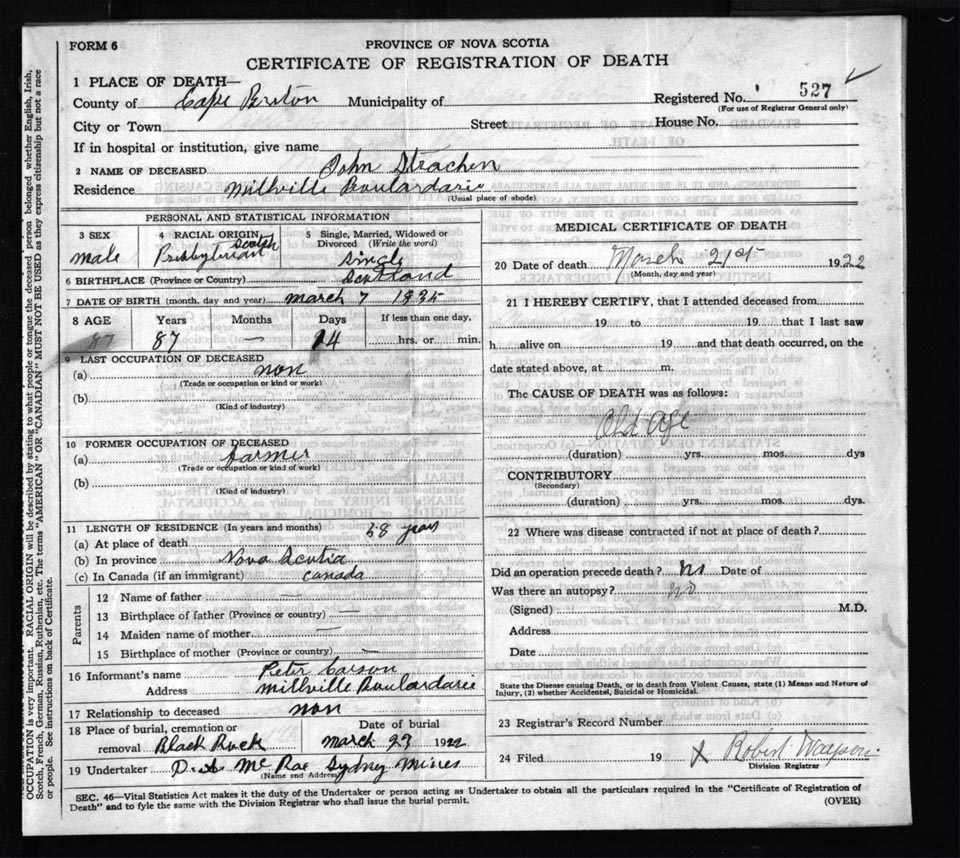 FORM 6
PROVINCE OF NOVA SCOTIA
CERTIFICATE OF REGISTRATION OF DEATH
1 PLACE OF DEATH—
County of Cape Breton Municipality of Registered No. 527
(For use of Registrar General only)
City or Town Street House No.
If in hospital or institution, give name
2 NAME OF DECEASED John Strachen
Residence Millville Boulardarie
(Usual place of abode)
PERSONAL AND STATISTICAL INFORMATION
3 SEX 4 RACIAL ORIGIN 5 Single, Married, Widowed or Divorced (Write the word)
male Presbyterian Scotch Single
6 BIRTHPLACE (Province or Country) Scotland
7 DATE OF BIRTH (month, day and year) March 7 1835
8 AGE Years Months Days If less than one day,
87 87 — 14 hrs. or min.
9 LAST OCCUPATION OF DECEASED
(a) non
(Trade or occupation or kind or work)
(b)
(Kind of industry)
10 FORMER OCCUPATION OF DECEASED
(a) farmer
(Trade or occupation or kind of work)
(b)
(Kind of industry)
11 LENGTH OF RESIDENCE (In years and months) 58 years
(a) At place of death
(b) In province Nova Scotia
(c) In Canada (if an immigrant) Canada
Parents
12 Name of father —
13 Birthplace of father (Province or country) —
14 Maiden name of mother —
15 Birthplace of mother (Province or country) —
16 Informant's name Peter Carson
Address Millville Boulardarie
17 Relationship to deceased non
18 Place of burial, cremation or removal Black Rock
Date of burial March 23 1922
19 Undertaker McRae Sydney Mines
(Name end Address)
MEDICAL CERTIFICATE OF DEATH
20 Date of death March 21st 1922
(Month, day and year)
21 I HEREBY CERTIFY, that I attended deceased from
19 to 19 that I last saw
h alive on 19 and that death occurred, on the
date stated above, at m.
The CAUSE OF DEATH was as follows:
Old age
(duration) yrs. mos. dys
CONTRIBUTORY
(Secondary)
(duration) yrs. mos. dys.
22 Where was disease contracted if not at place of death?
Did an operation precede death? No Date of
Was there an autopsy? no
(Signed) M.D.
Address
Date
State the Disease causing Death, or in death from Violent Causes, state (1) Means and Nature of
Injury, (2) whether Accidental, Suicidal or Homicidal.
23 Registrar's Record Number
24 Filed 19 X Robert
Division Registrar
SEC. 46—Vital Statistics Act makes it the duty of the Undertaker or person acting as Undertaker to obtain all the particulars required in the "Certificate of Registration of
Death" and to fyle the same with the Division Registrar who shall issue the burial permit. (OVER)
OCCUPATION is very important. RACIAL ORIGIN will be described by stating to what people or tongue the deceased person belonged whether English, Irish,
Scotch, French, German, Russian, Ruthenian, etc. The terms "AMERICAN" OR "CANADIAN" MUST NOT BE USED as they express citizenship but not a race
or people. See instructions on back of Certificate.